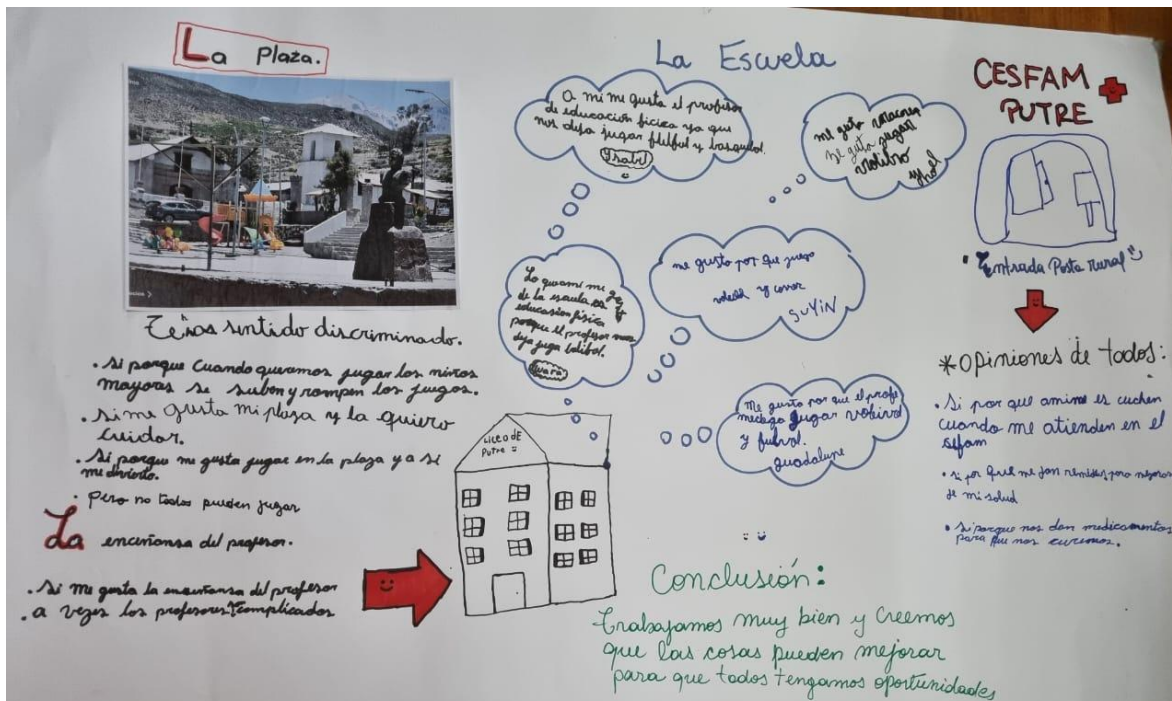 La Plaza.
Te has sentido discriminado.
. Si porque cuando queramos jugar los niños
mayores se suben y rompen los juegos.
. Si me gusta mi plaza y la quiero
cuidar.
. Si porque me gusta jugar en la plaza y a si
me divierto.
. Pero no todos pueden jugar
La enceñansa del profesor.
. Si me gusta la enceñansa del profesor
. a vezes los profesores complicados
La Escuela
A mi me gusta el profesor
de educacion ficica ya que
nos deja jugar futful y basquibol.
Ysabel
me gusta
se gusta jugar
volibo
Lo que ami me
de la escuela es
educacion fisica
porque el profesor nos
deja juga bolibol.
me gusto por que juego
y correr
SUYIN
Me gusto por que el profe
me dega jugar volivol
y futvol.
guadalupe
Liceo de
Putre
Conclusión:
Trabajamos muy bien y Creemos
que las cosas pueden mejorar
para que todos tengamos oportunidades
CESFAM
PUTRE
"Entrada Posta Rural"
* Opiniones de todos:
. Si por que amime es cuchen
cuando me atienden en el
sefam
. si por que me dan remidios para mejorar
de mi salud
. Si porque nos dan medicamentos
para que nos curemos.